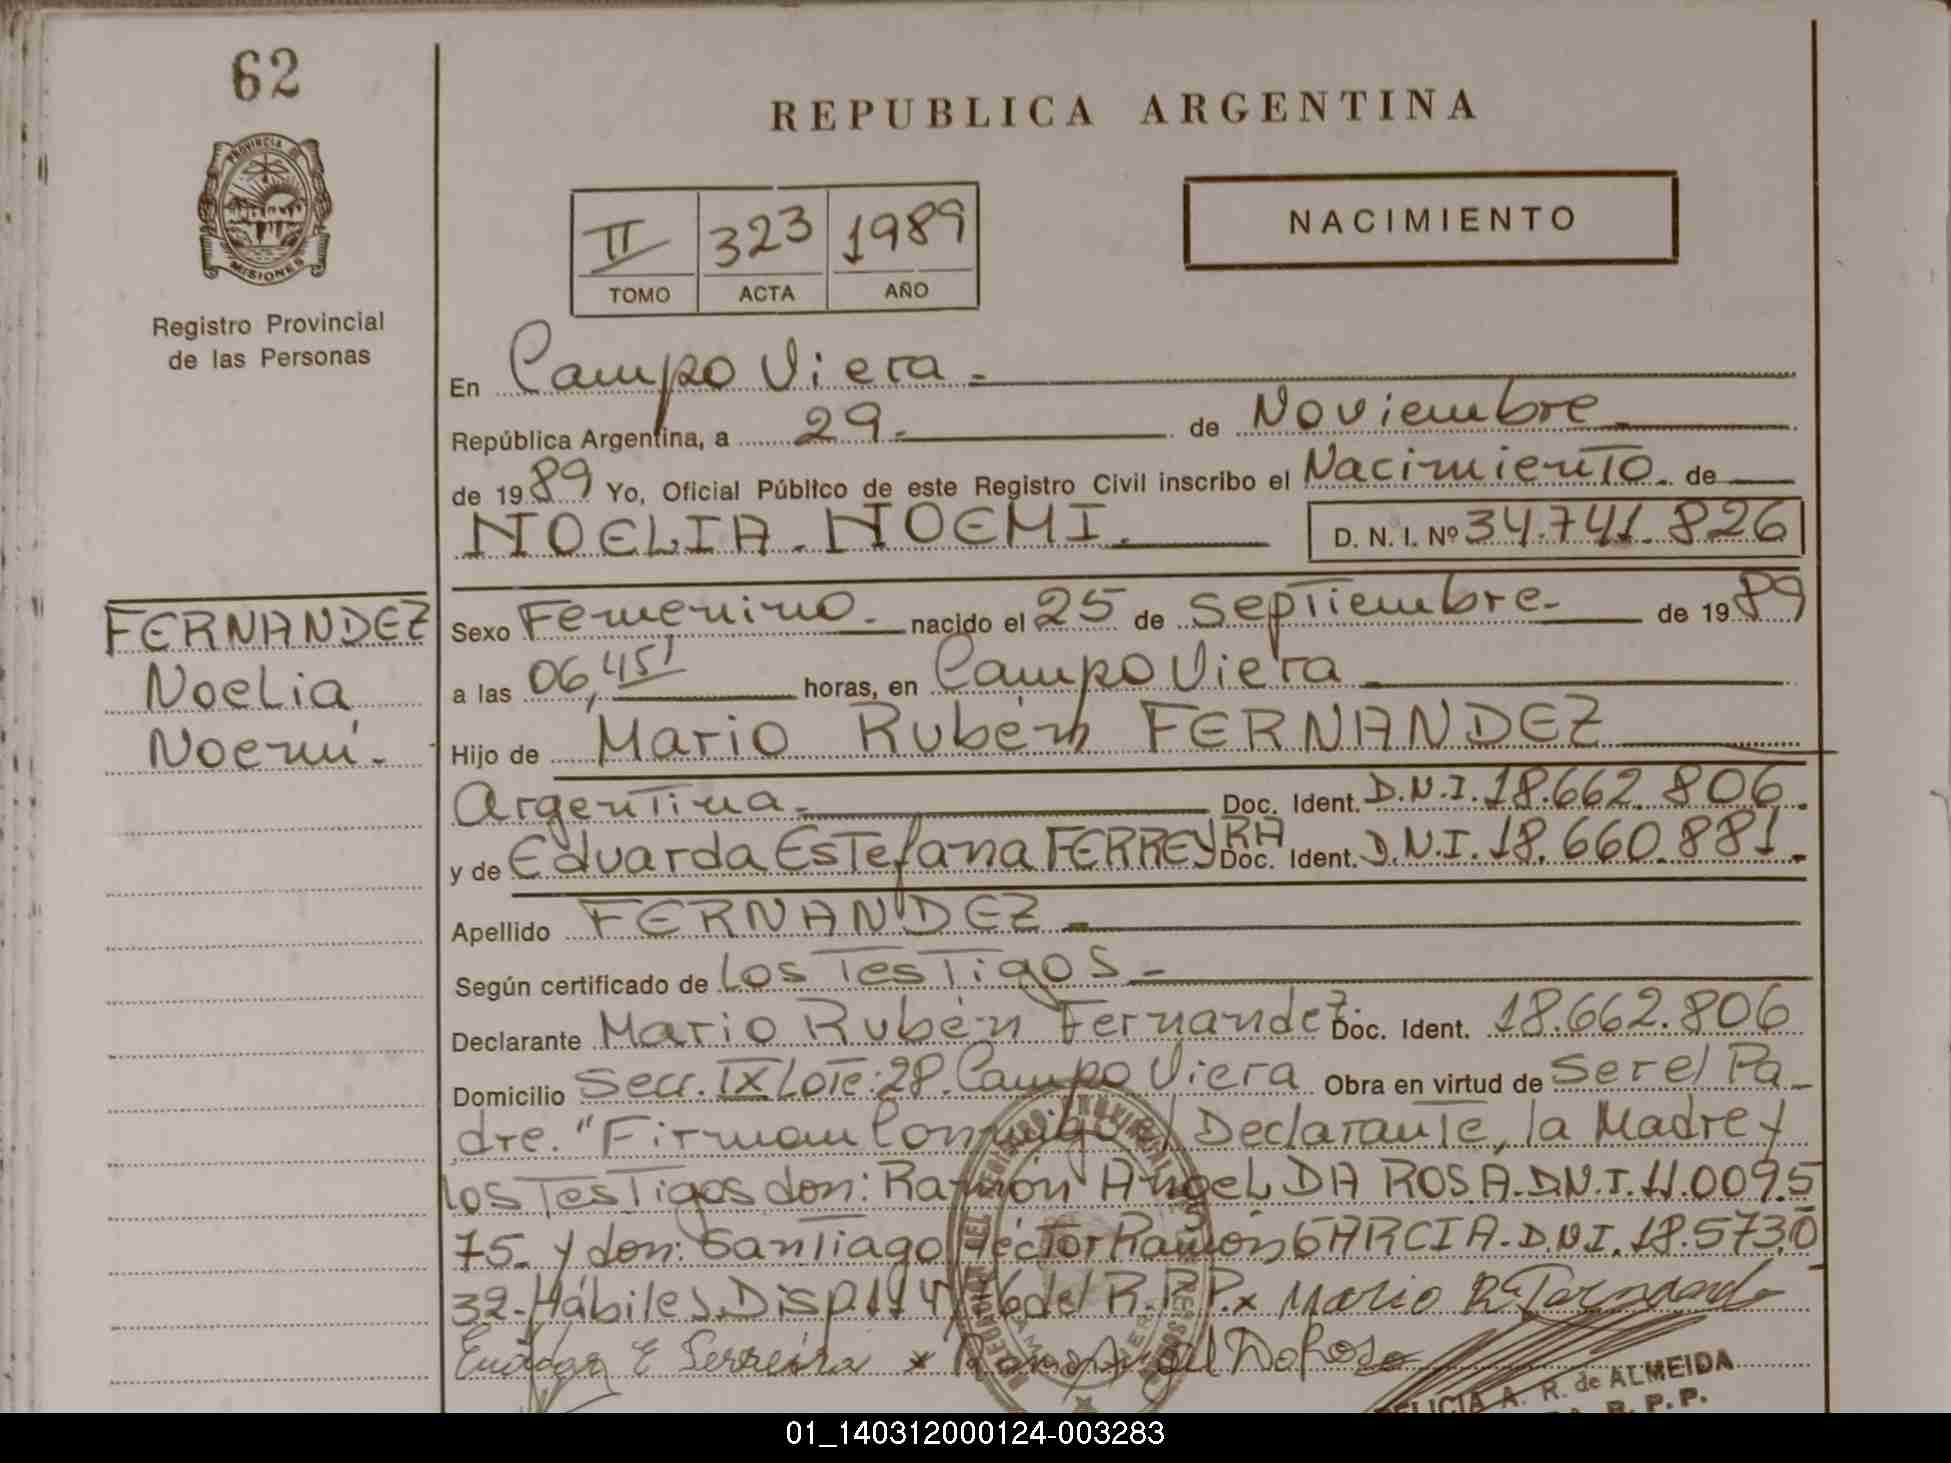 62
REPUBLICA ARGENTINA
PROVINCIA DE
MISIONES
Registro Provincial
de las Personas
NACIMIENTO
II 323 1989
TOMO ACTA AÑO
En Campo Viera -
República Argentina, a 29. de Noviembre
de 1989 Yo, Oficial Público de este Registro Civil inscribo el Nacimiento. de
NOELIA. NOEMI. D. N. I. Nº 34.741.826
FERNANDEZ
Noelia
Noemí.-
Sexo Femenino.- nacido el 25 de Septiembre.- de 1989
a las 06,45' horas, en Campo Viera
Hijo de Mario Rubén FERNANDEZ
Argentina.- Doc. Ident. D.N.I.18.662.806.
y de Eduarda Estefana FERREYRA Doc. Ident. D.N.I.18.660.881.
Apellido FERNANDEZ.-
Según certificado de los Testigos.-
Declarante Mario Rubén Fernandez Doc. Ident. 18.662.806
Domicilio Secc. IX Lote: 28. Campo Viera Obra en virtud de Ser el Pa-
dre. "Firman Conmigo el Declarante, la Madre y
los Testigos don: Ramón Angel DA ROSA. D.N.I.11.009.5
75. y don: Santiago Héctor Ramón GARCIA. D.N.I. 18.573.0
32.- Hábiles. Disp. 114/76 del R.P.P. x Mario R.
x
A. R. de ALMEIDA
R. P. P.
01_140312000124-003283